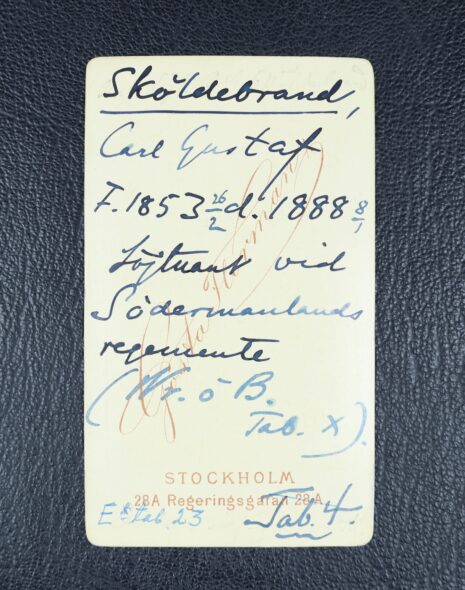 Sköldebrand,
Carl Gustaf
F. 1853 26/2 d. 1888 8/1
Löjtnant vid
Södermanlands
regemente
(Wr. o B.
Tab. X).
Gösta Florman
STOCKHOLM
28A Regeringsgatan 28A
Tab. 4.
tab. 23